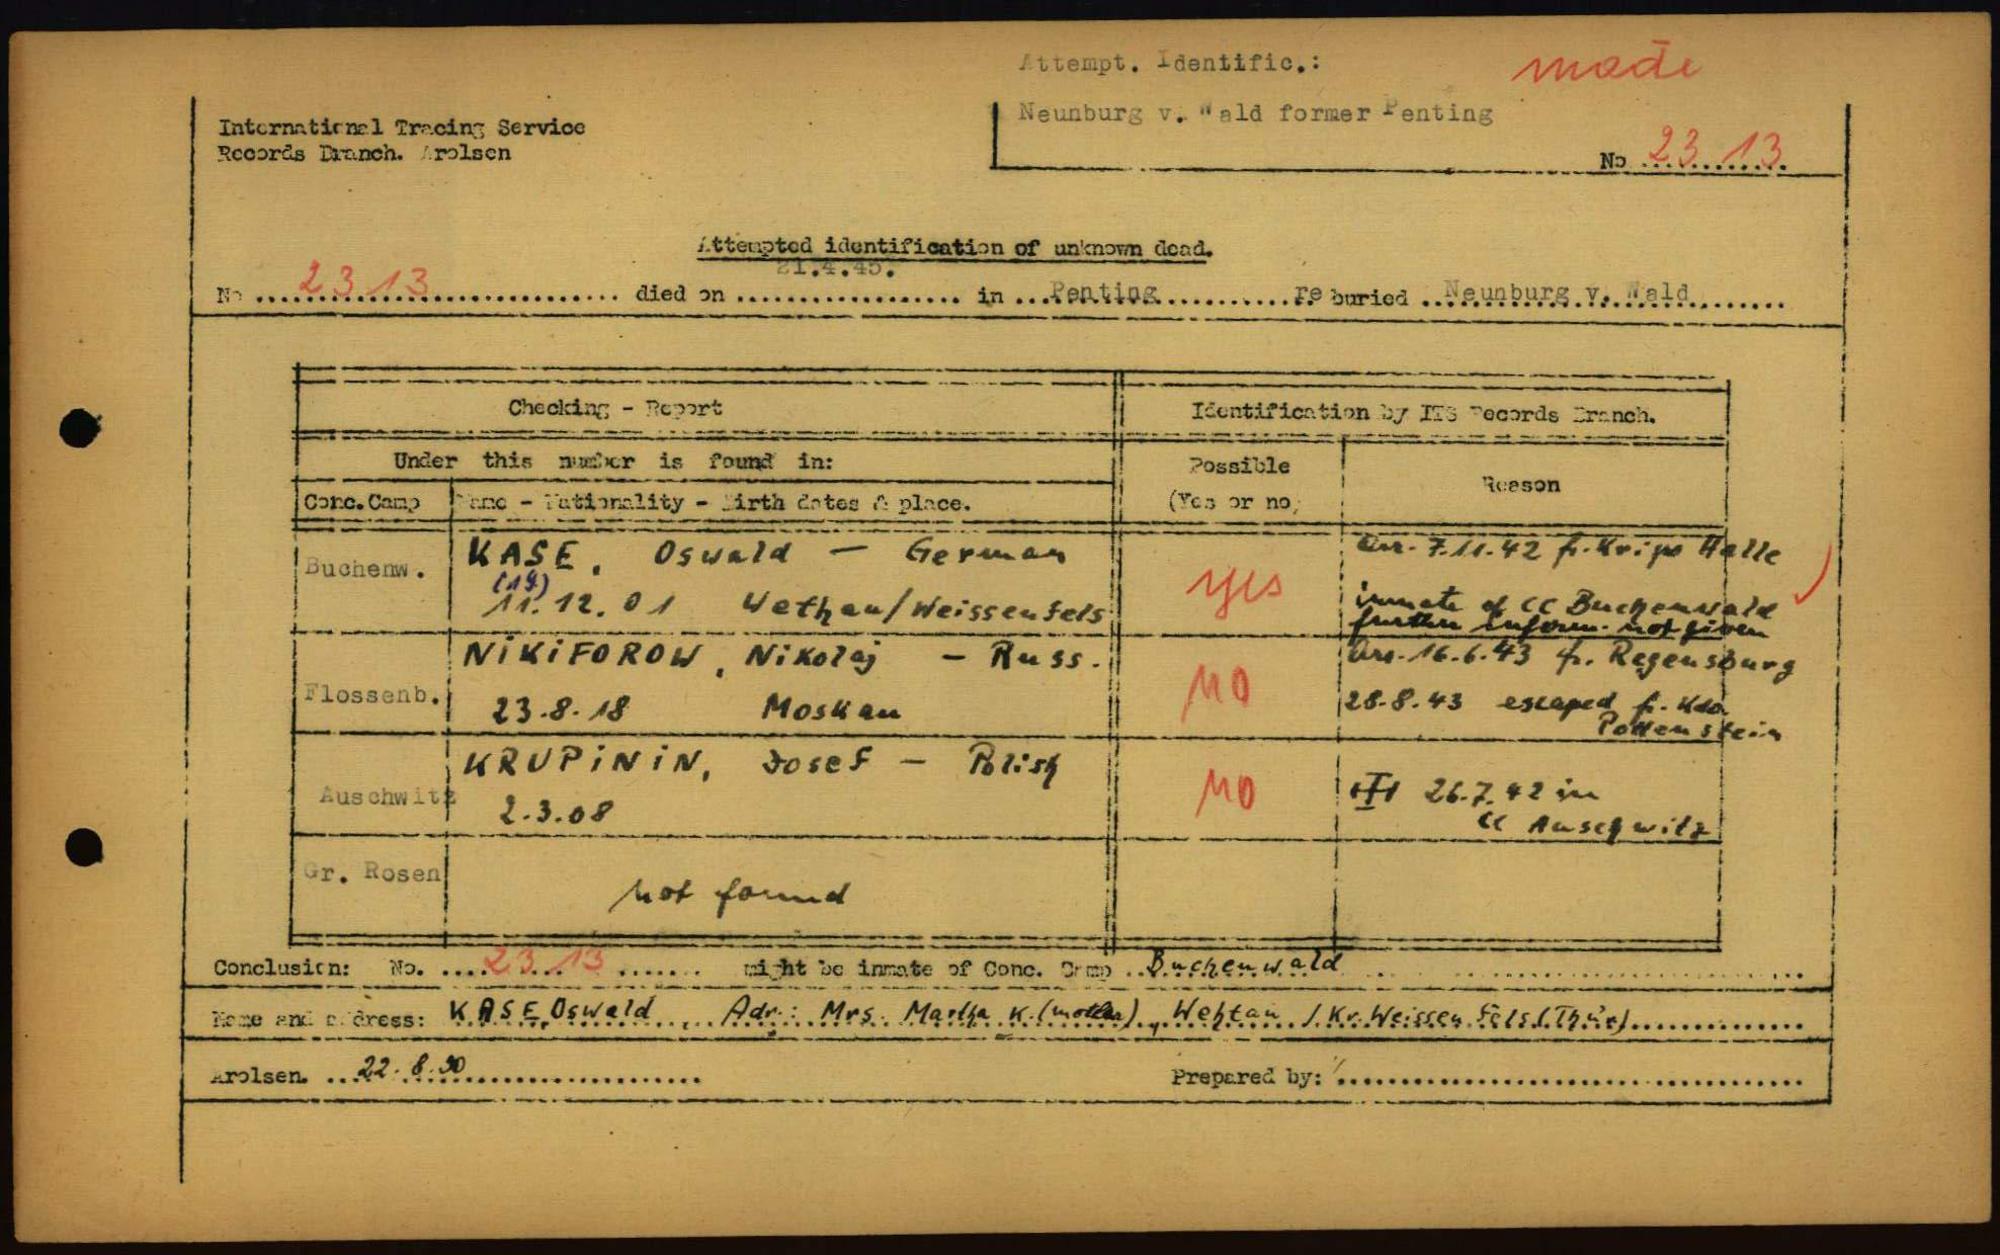 Attempt. Identific.: made
Neunburg v. Wald former Penting
International Tracing Service
Records Branch. Arolsen
No 23 13
Attempted identification of unknown dead.
No 2313 died on 21.4.45. in Penting re buried Neunburg v. Wald
Checking - Report
Identification by ITS Records Branch.
Under this number is found in:
Possible
(Yes or no)
Reason
Conc. Camp
Name - Nationality - Birth dates & place.
Buchenw.
KASE, Oswald - German
(19)
11.12.01 Wethau/Weissenfels
yes
arr. 7.11.42 fr. Kripo Halle
inmate of CC Buchenwald
further inform. not given
Flossenb.
NIKIFOROW, Nikolaj - Russ.
23.8.18 Moskau
NO
arr. 16.6.43 fr. Regensburg
28.8.43 escaped fr. Kdo
Pottenstein
Auschwitz
KRUPININ, Josef - Polish
2.3.08
NO
26.7.42 in
CC Auschwitz
Gr. Rosen
not found
Conclusion: No. 23 13 might be inmate of Conc. Camp Buchenwald
Name and address: KASE, Oswald, Adr.: Mrs. Martha K. (mother), Wehtau / Kr. Weissenfels (Thür)
Arolsen. 22.8.50
Prepared by: